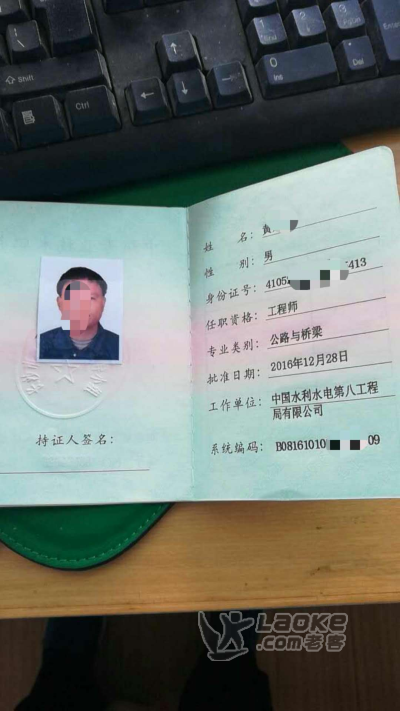 Shift
Ctrl
End
3
PgDn
0
Ins
Del
姓 名:
性 别: 男
身份证号: 4105 5413
任职资格: 工程师
专业类别: 公路与桥梁
批准日期: 2016年12月28日
工作单位: 中国水利水电第八工程
局有限公司
系统编码: B08161010 09
持证人签名:
LAOKE
.com老客